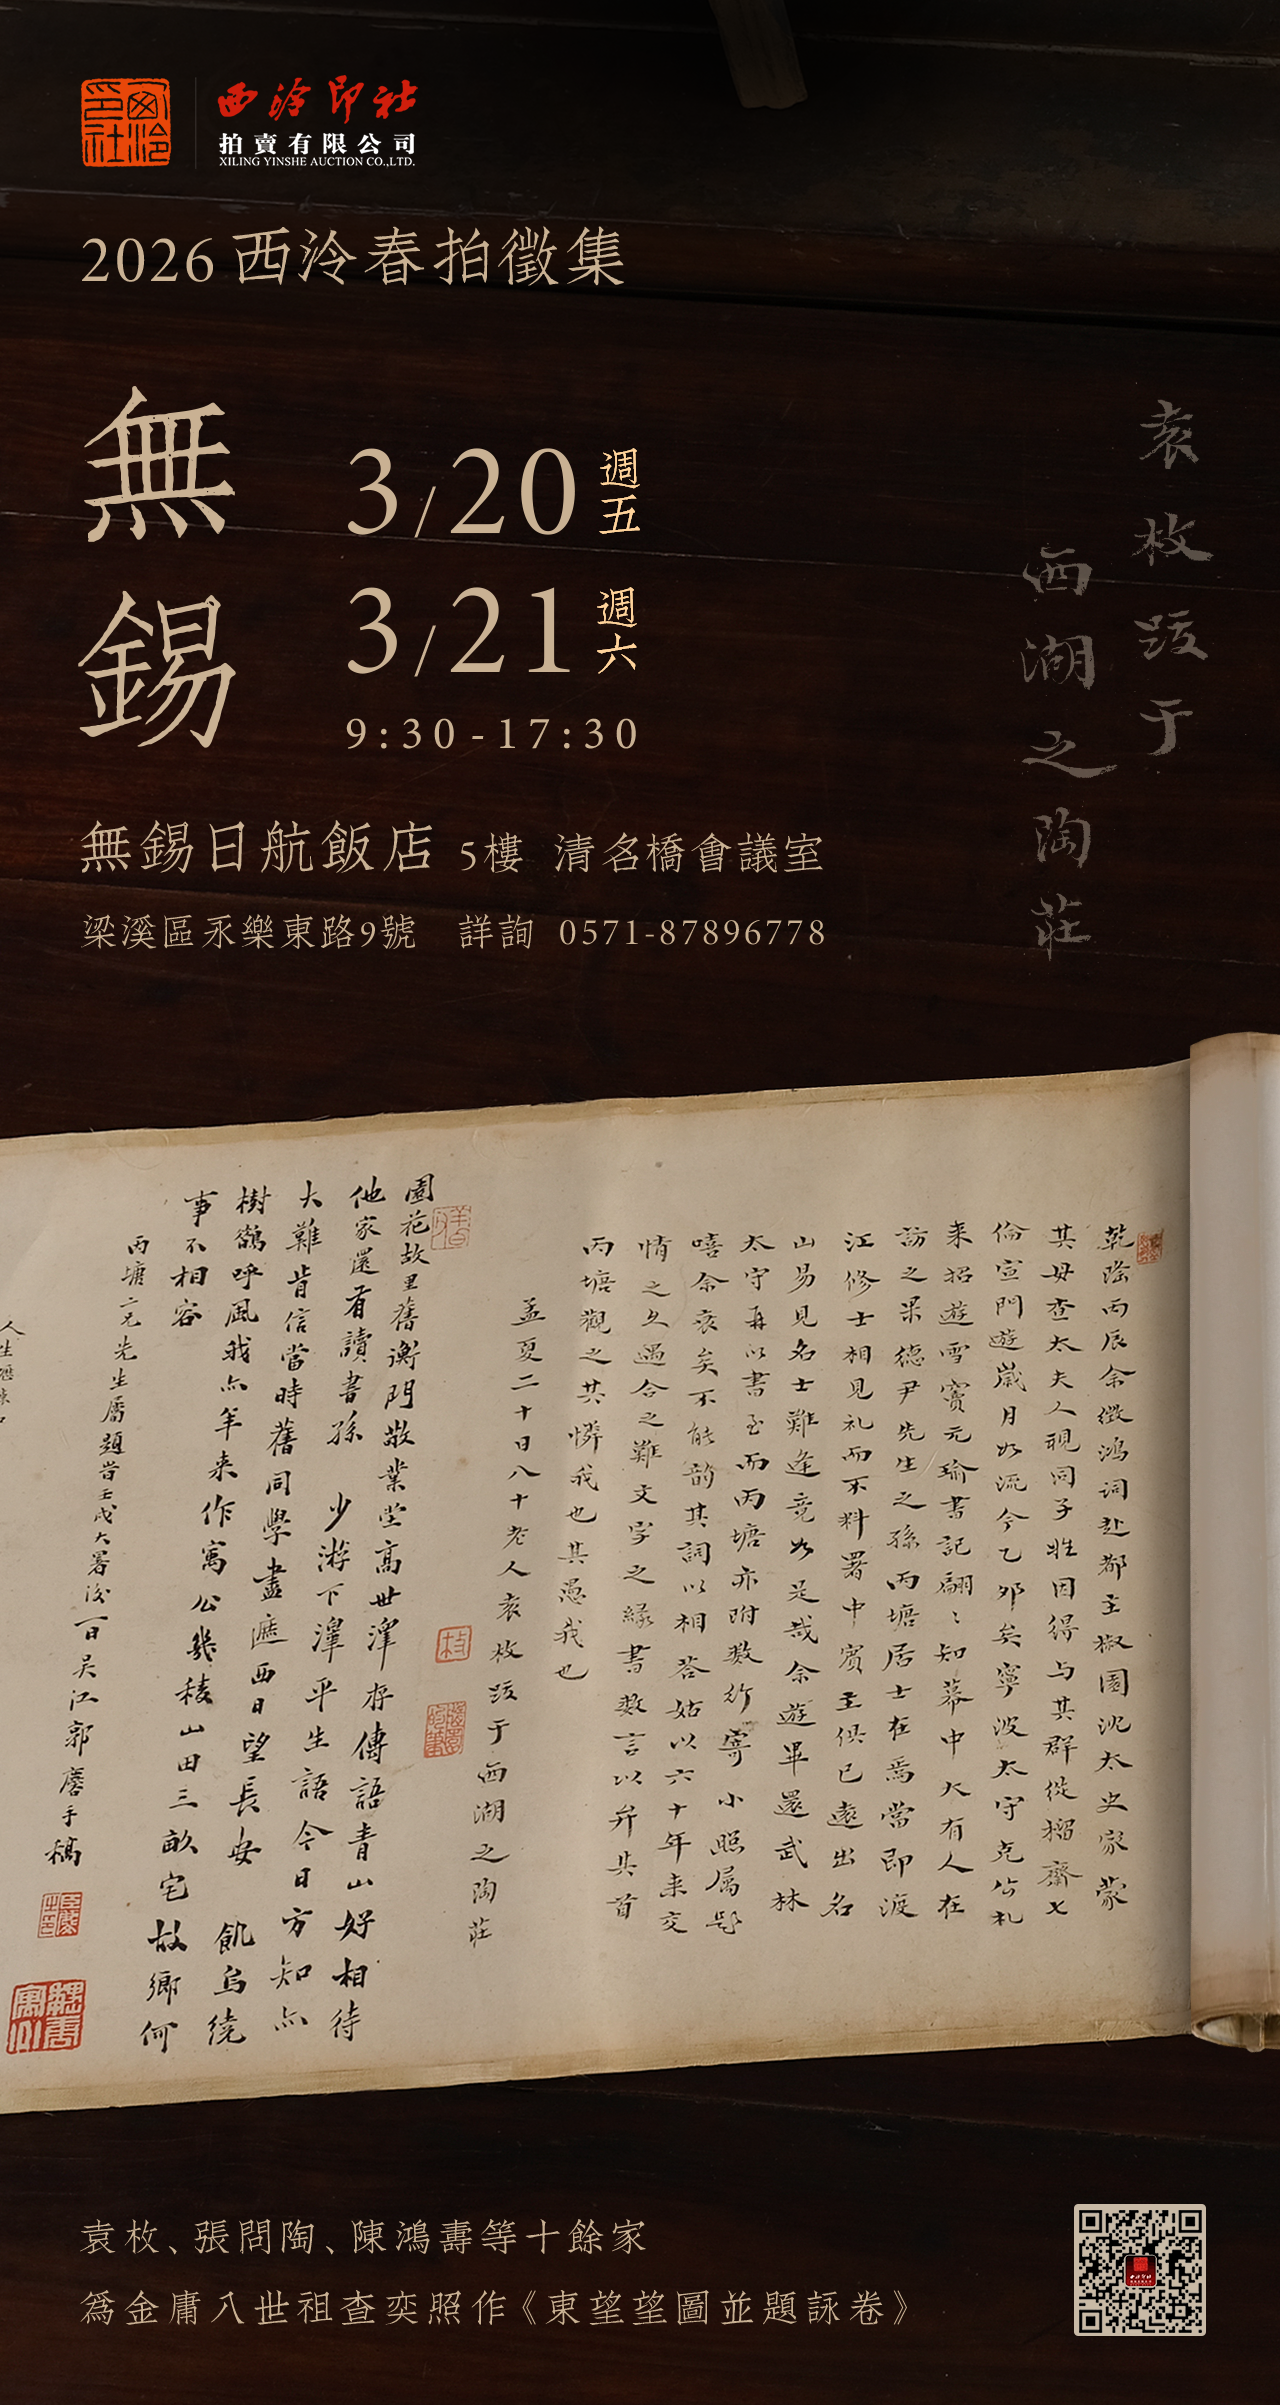 西泠印社
西泠印社
拍賣有限公司
XILING YINSHE AUCTION CO.,LTD.
2026 西泠春拍徵集
無錫
3/20 週五
3/21 週六
9:30-17:30
無錫日航飯店 5樓 清名橋會議室
梁溪區永樂東路9號 詳詢 0571-87896778
袁枚跋于
西湖之陶莊
乾隆丙辰余徵鴻詞赴都主椒園沈太史家蒙
其母查太夫人視同子姓因得与其群從揖齋七
倫宣門遊歲月如流今乙卯矣寧波太守克公札
来招遊雪竇元瑜書記翩〻知幕中大有人在
訪之果德尹先生之孫丙塘居士在焉當即渡
江修士相見礼而不料署中賓主俱已遠出名
山易見名士難逢竟如是哉余遊畢還武林
太守再以書至而丙塘亦附数行寄小照属題
嘻余衰矣不能韵其詞以相荅姑以六十年来交
情之久遇合之難文字之緣書数言以弁其首
丙塘觀之其憐我也其憑我也
孟夏二十日八十老人袁枚跋于西湖之陶莊
園花故里舊衡門敬業堂高世澤存傳語青山好相待
他家還有讀書孫 少游下澤平生語今日方知亦
大難肯信當時舊同學盡遮西日望長安 飢烏繞
樹鶴呼風我亦年来作寓公幾稜山田三畝宅故鄉何
事不相容
丙塘二兄先生屬題昔壬戌大署後一日吴江郭麐手稿
袁枚、張問陶、陳鴻壽等十餘家
為金庸八世祖查奕照作《東望望圖並題詠卷》